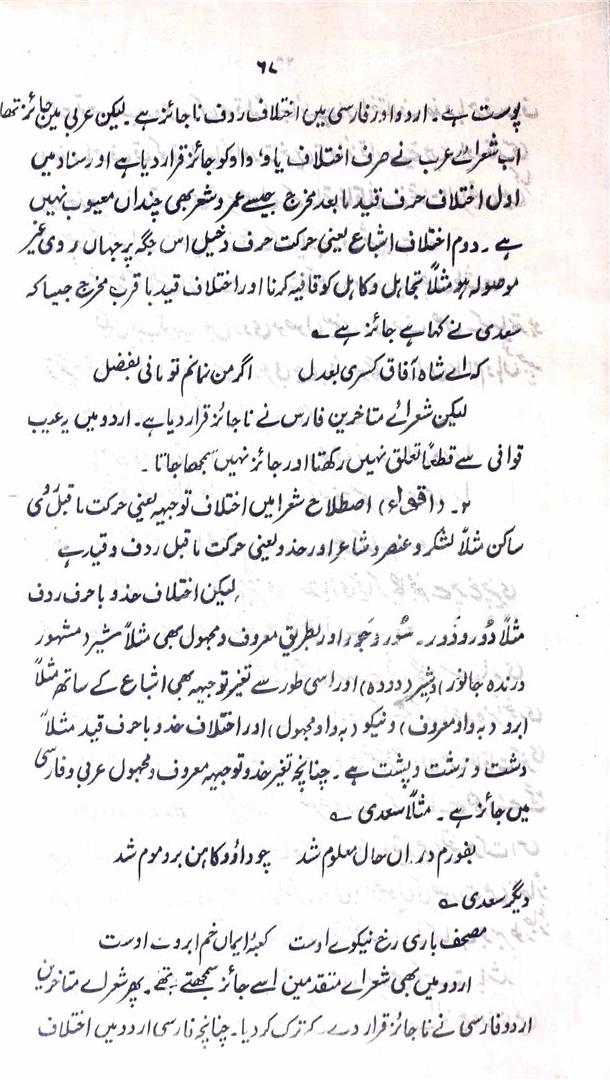 ۶۷
پوست ہے۔ اردو اور فارسی میں اختلاف ردف ناجائز ہے۔ لیکن عربی مین جائز تھا
اب شعرائے عرب نے صرف اختلاف یا و واو کو جائز قرار دیا ہے اور سناد میں
اول اختلاف حرف قید با بعد مخرج جیسے عمر و شعر بھی چنداں معیوب نہیں
ہے۔ دوم اختلاف اشباع یعنی حرکت حرف دخیل اس جگہ پر جہاں روی غیر
موصولہ ہو مثلاً تجاہل و کاہل کو قافیہ کرنا اور اختلاف قید با قرب مخرج جیسا کہ
سعدی نے کہا ہے جائز ہے ؎
کہ اے شاہ آفاق کسری بعدل اگر من نمانم تو مانی بفضل
لیکن شعرائے متاخرین فارس نے ناجائز قرار دیا ہے۔ اردو میں یہ عیب
قوافی سے قطعاً تعلق نہیں رکھتا اور جائز نہیں سمجھا جاتا۔
۲۔ (اقواء) اصطلاح شعرا میں اختلاف توجیہ یعنی حرکت ماقبل روی
ساکن مثلاً لشکر و عنصر و شاعر اور حذو یعنی حرکت ماقبل ردف و قید ہے
لیکن اختلاف حذو با حرف ردف
مثلاً دُور و دَور۔ سُور و جَور اور بطریق معروف و مجہول بھی مثلاً شیر (مشہور
درندہ جانور) و شِیر (دودہ) اور اسی طور سے تغیر توجیہ بھی اشباع کے ساتھ مثلاً
ابرو (بہ واو معروف) و نیکو (بہ واو مجہول) اور اختلاف حذو با حرف قید مثلاً
دشت و زشت و پشت ہے۔ چنانچہ تغیر حذو و توجیہ معروف و مجہول عربی و فارسی
میں جائز ہے۔ مثلاً سعدی ؎
بفورم در آن حال معلوم شد چو داؤد کاہن برو موم شد
دیگر سعدی ؎
مصحف باری رخ نیکوے اوست کعبۂ ایماں خم ابروے اوست
اردو میں بھی شعراے متقدمین اسے جائز سمجھتے تھے۔ پھر شعراے متاخرین
اردو فارسی نے ناجائز قرار دے کر ترک کردیا۔ چنانچہ فارسی اردو میں اختلاف